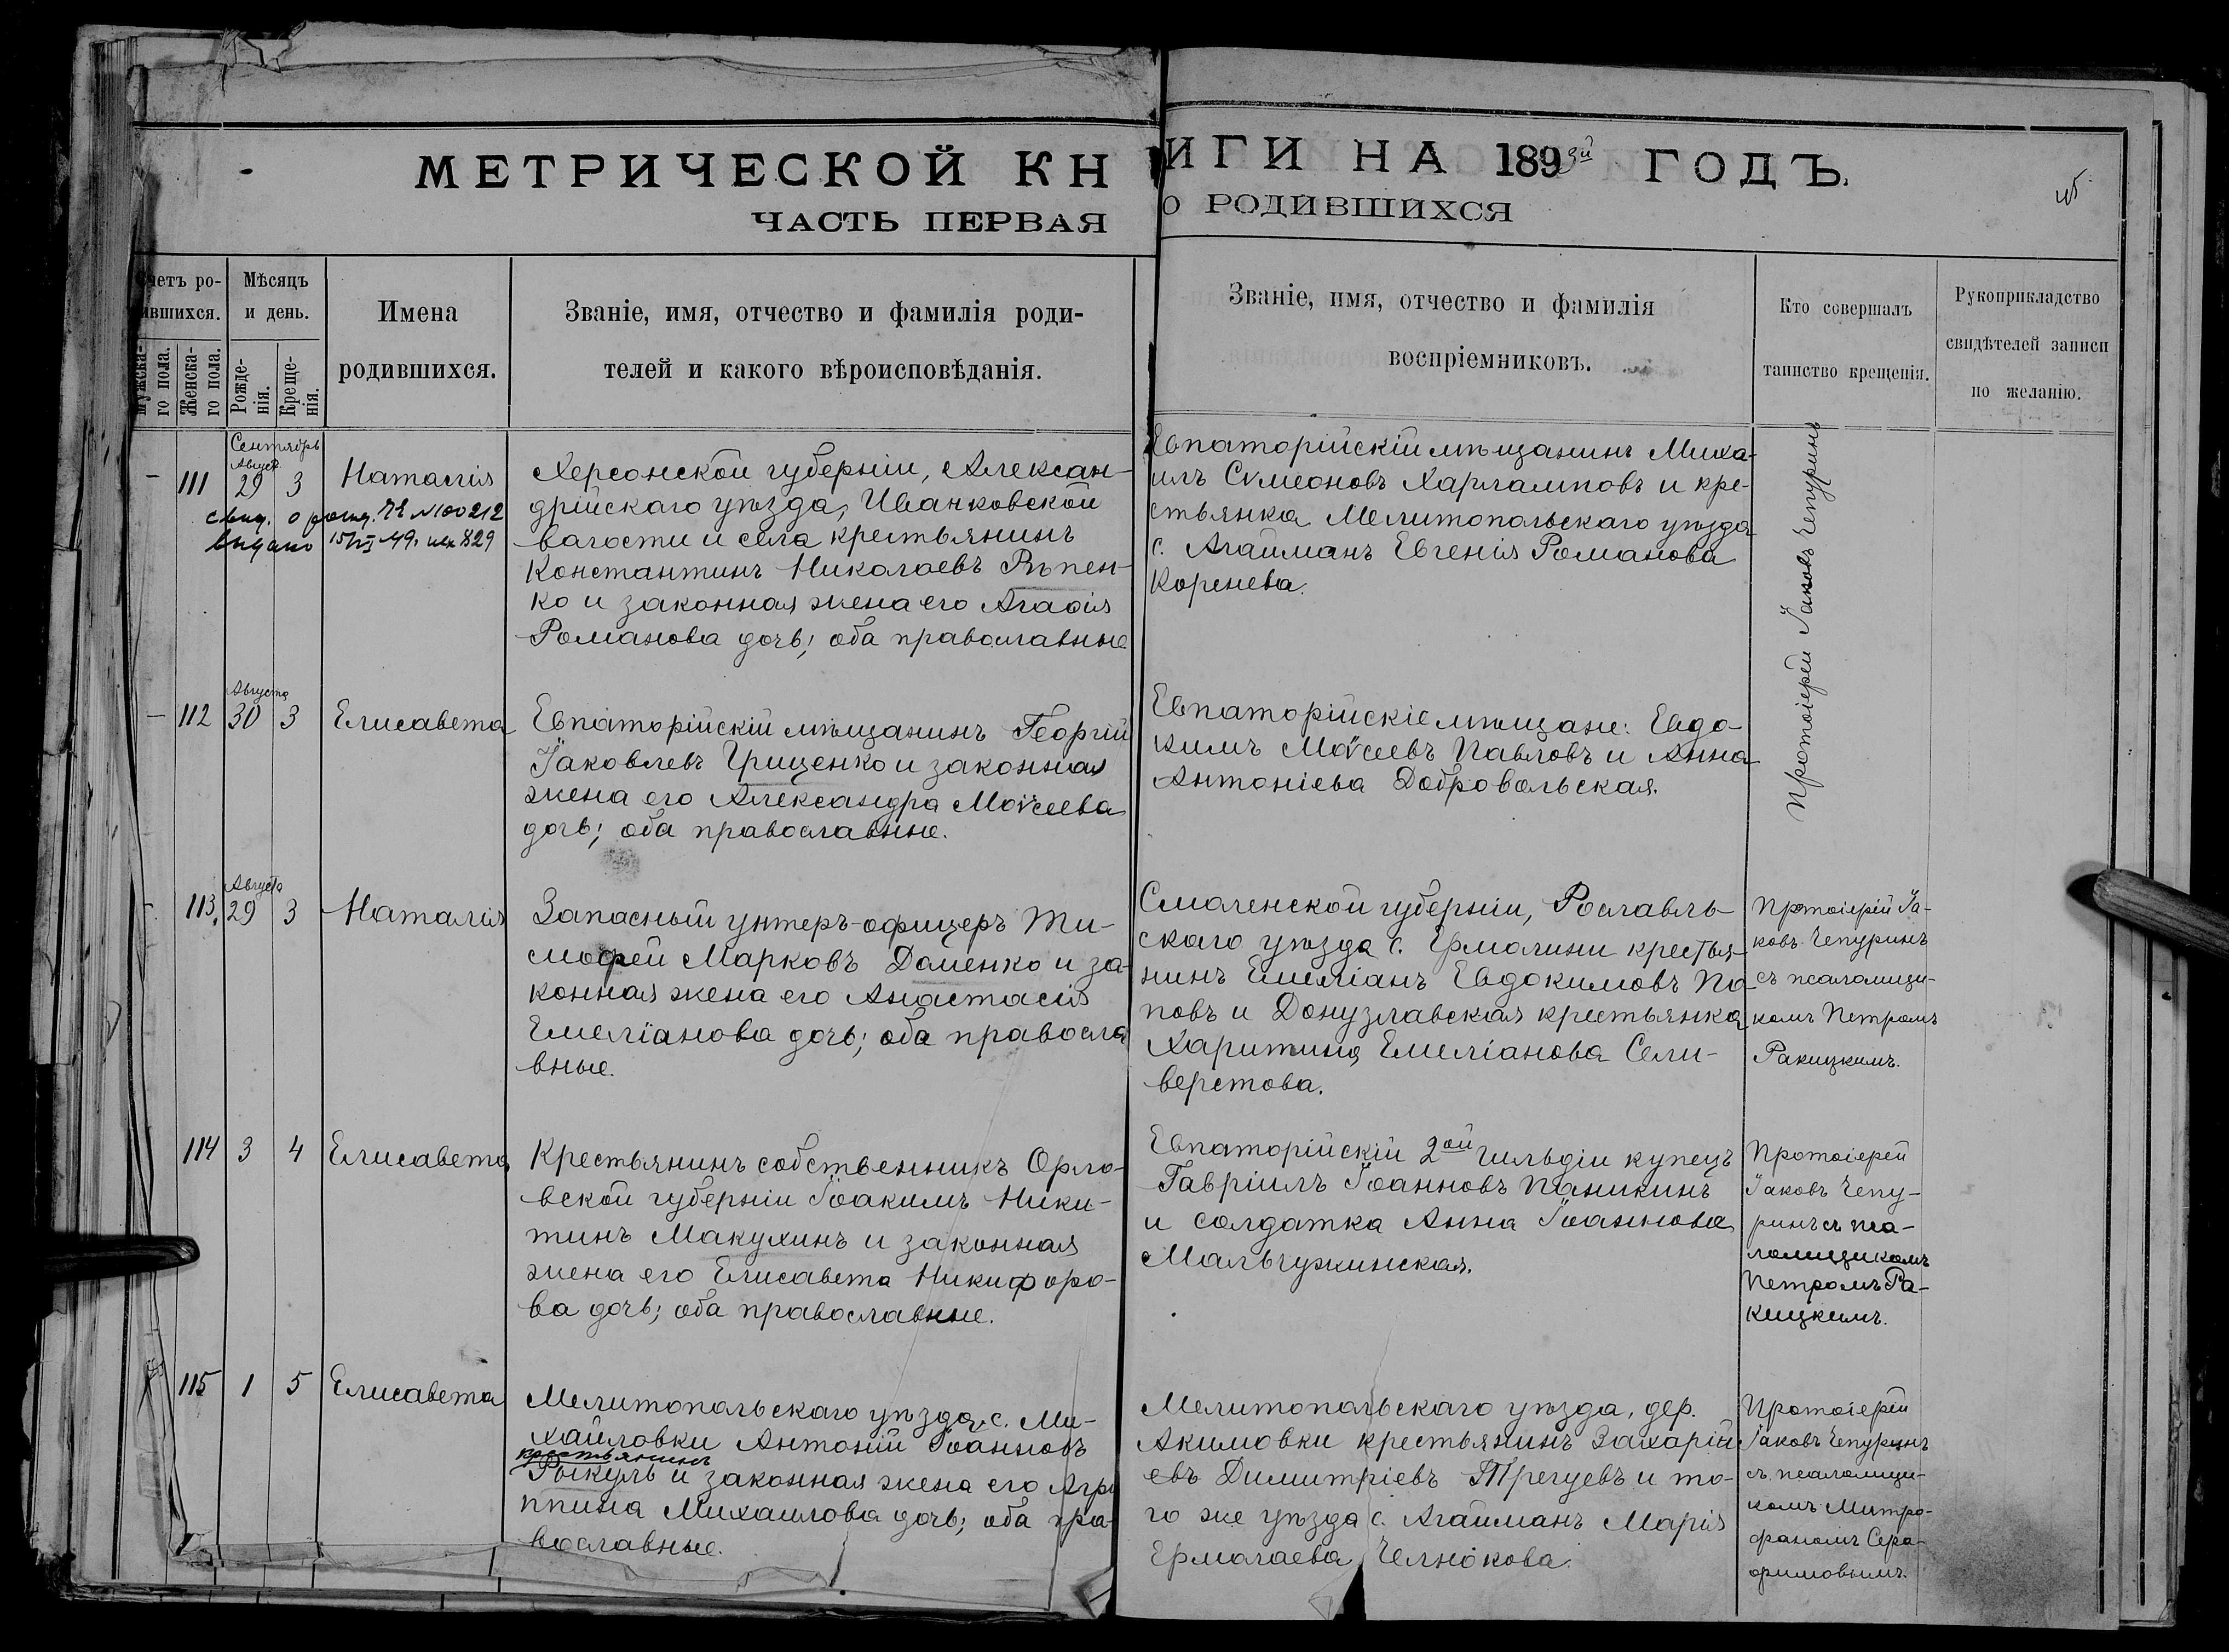 МЕТРИЧЕСКОЙ КНИГИ НА 1893й ГОДЪ.
ЧАСТЬ ПЕРВАЯ О РОДИВШИХСЯ
Счетъ ро-
дившихся.
Мужска-
го пола.
Женска-
го пола.
Мѣсяцъ
и день.
Рожде-
нія.
Креще-
нія.
Имена
родившихся.
Званіе, имя, отчество и фамилія роди-
телей и какого вѣроисповѣданія.
Званіе, имя, отчество и фамилія
воспріемниковъ.
Кто совершалъ
таинство крещенія.
Рукоприкладство
свидѣтелей записи
по желанію.
Сентябрь
Август
– 111 29 3 Наталія
свид. о рожд. № 100212
выдано 15/VI 49. 829
Херсонской губерніи, Алексан-
дрійскаго уѣзда, Иванковской
валости и села крестьянинъ
Константинъ Николаевъ Рѣпен-
ко и законная жена его Агаѳія
Романова дочь; оба православные
Евпаторійскій мѣщанинъ Миха-
илъ Сѵмеоновъ Харламповъ и кре-
стьянка Мелитопольскаго уѣзда
с. Агайманъ Евгенія Романова
Коренева.
Протоіерей Іаковъ Чепуринъ
Августа
– 112 30 3 Елисавета
Евпаторійскій мѣщанинъ Георгій
Іаковлевъ Грищенко и законная
жена его Александра Моѵсеева
дочь; оба православные.
Евпаторійскіе мѣщане: Евдо-
кимъ Моѵсеевъ Павловъ и Анна
Антоніева Добровольская.
Августа
– 113. 29 3 Наталія
Запасный унтеръ-офицеръ Ти-
моѳей Марковъ Доменко и за-
конная жена его Анастасія
Емеліанова дочь; оба правосла
вные.
Смоленской губерніи, Рославль-
скаго уѣзда с. Ермолини крестья-
нинъ Емеліанъ Евдокимовъ По-
повъ и Донузлавская крестьянка
Харитина Емеліанова Сели-
верстова.
Протоіерей Іа-
ковъ Чепуринъ
съ псаломщи-
комъ Петромъ
Ракицкимъ.
114 3 4 Елисавета
Крестьянинъ собственникъ Орло-
вской губерніи Іоакимъ Ники-
тинъ Макухинъ и законная
жена его Елисавета Никифоро-
ва дочь; оба православные.
Евпаторійскій 2ой гильдіи купецъ
Гавріилъ Іоанновъ Паникинъ
и солдатка Анна Іоаннова
Мальчужинская.
Протоіерей
Іаковъ Чепу-
ринъ съ пса-
ломщикомъ
Петромъ Ра-
кицкимъ.
115 1 5 Елисавета
Мелитопольскаго уѣзда, с. Ми-
хайловки Антоній Іоанновъ
крестьянинъ
Рыкуль и законная жена его Агри
ппина Михаилова дочь; оба пра-
вославные.
Мелитопольскаго уѣзда, дер.
Акимовки крестьянинъ Захарій
евъ Димитріевъ Трегуевъ и то-
го же уѣзда с. Агайманъ Марія
Ермолаева Челнокова.
Протоіерей
Іаковъ Чепуринъ
съ псаломщи-
комъ Митро-
фаномъ Сера-
фимовымъ.